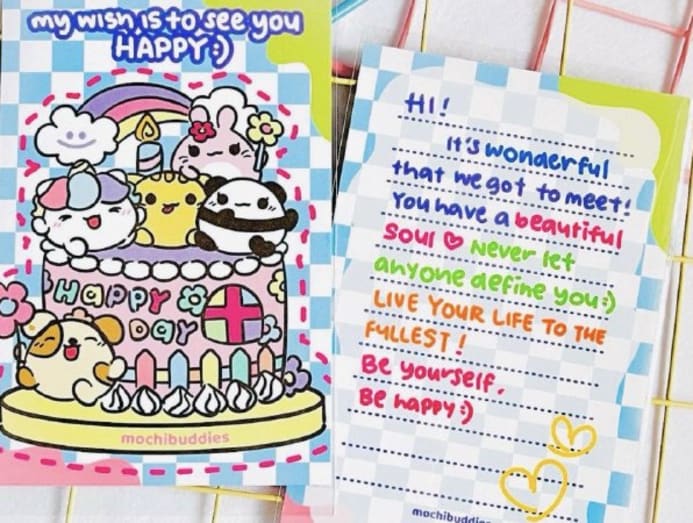 my wish is to see you
HAPPY :)
Happy
Day
mochibuddies
HI!
It's wonderful
that we got to meet!
You have a beautiful
soul ♡ Never let
anyone define you :)
LIVE YOUR LIFE TO THE
FULLEST!
Be yourself.
Be happy :)
mochibuddies